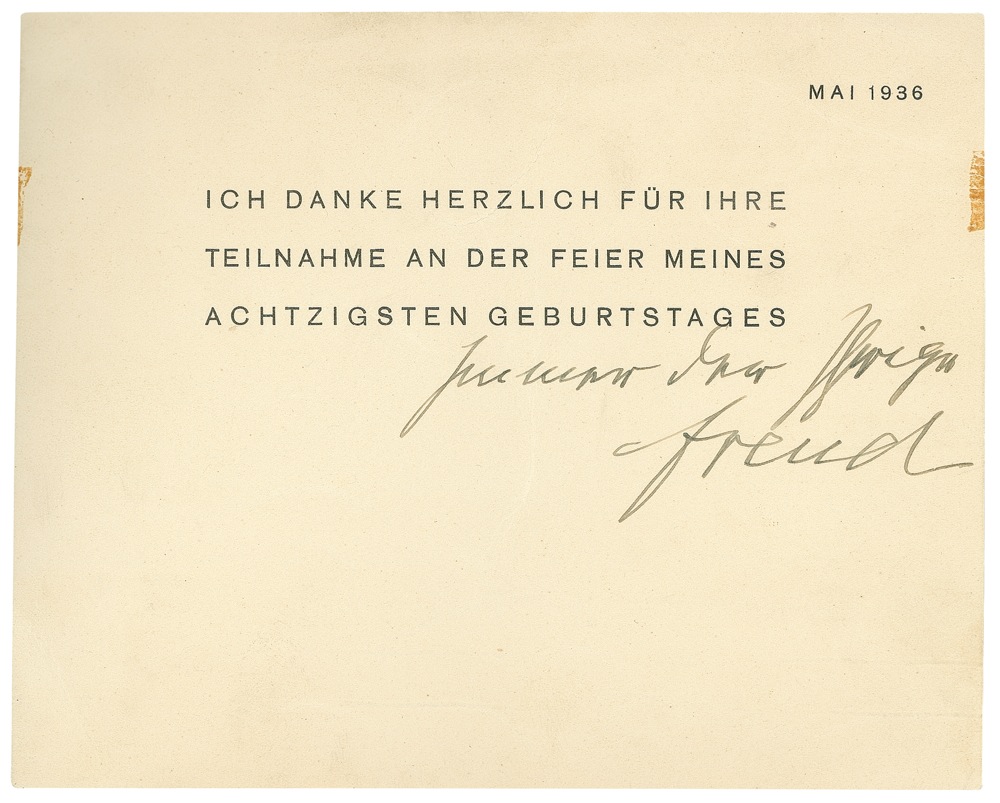 MAI 1936
ICH DANKE HERZLICH FÜR IHRE
TEILNAHME AN DER FEIER MEINES
ACHTZIGSTEN GEBURTSTAGES
Immer der Ihrige
Freud